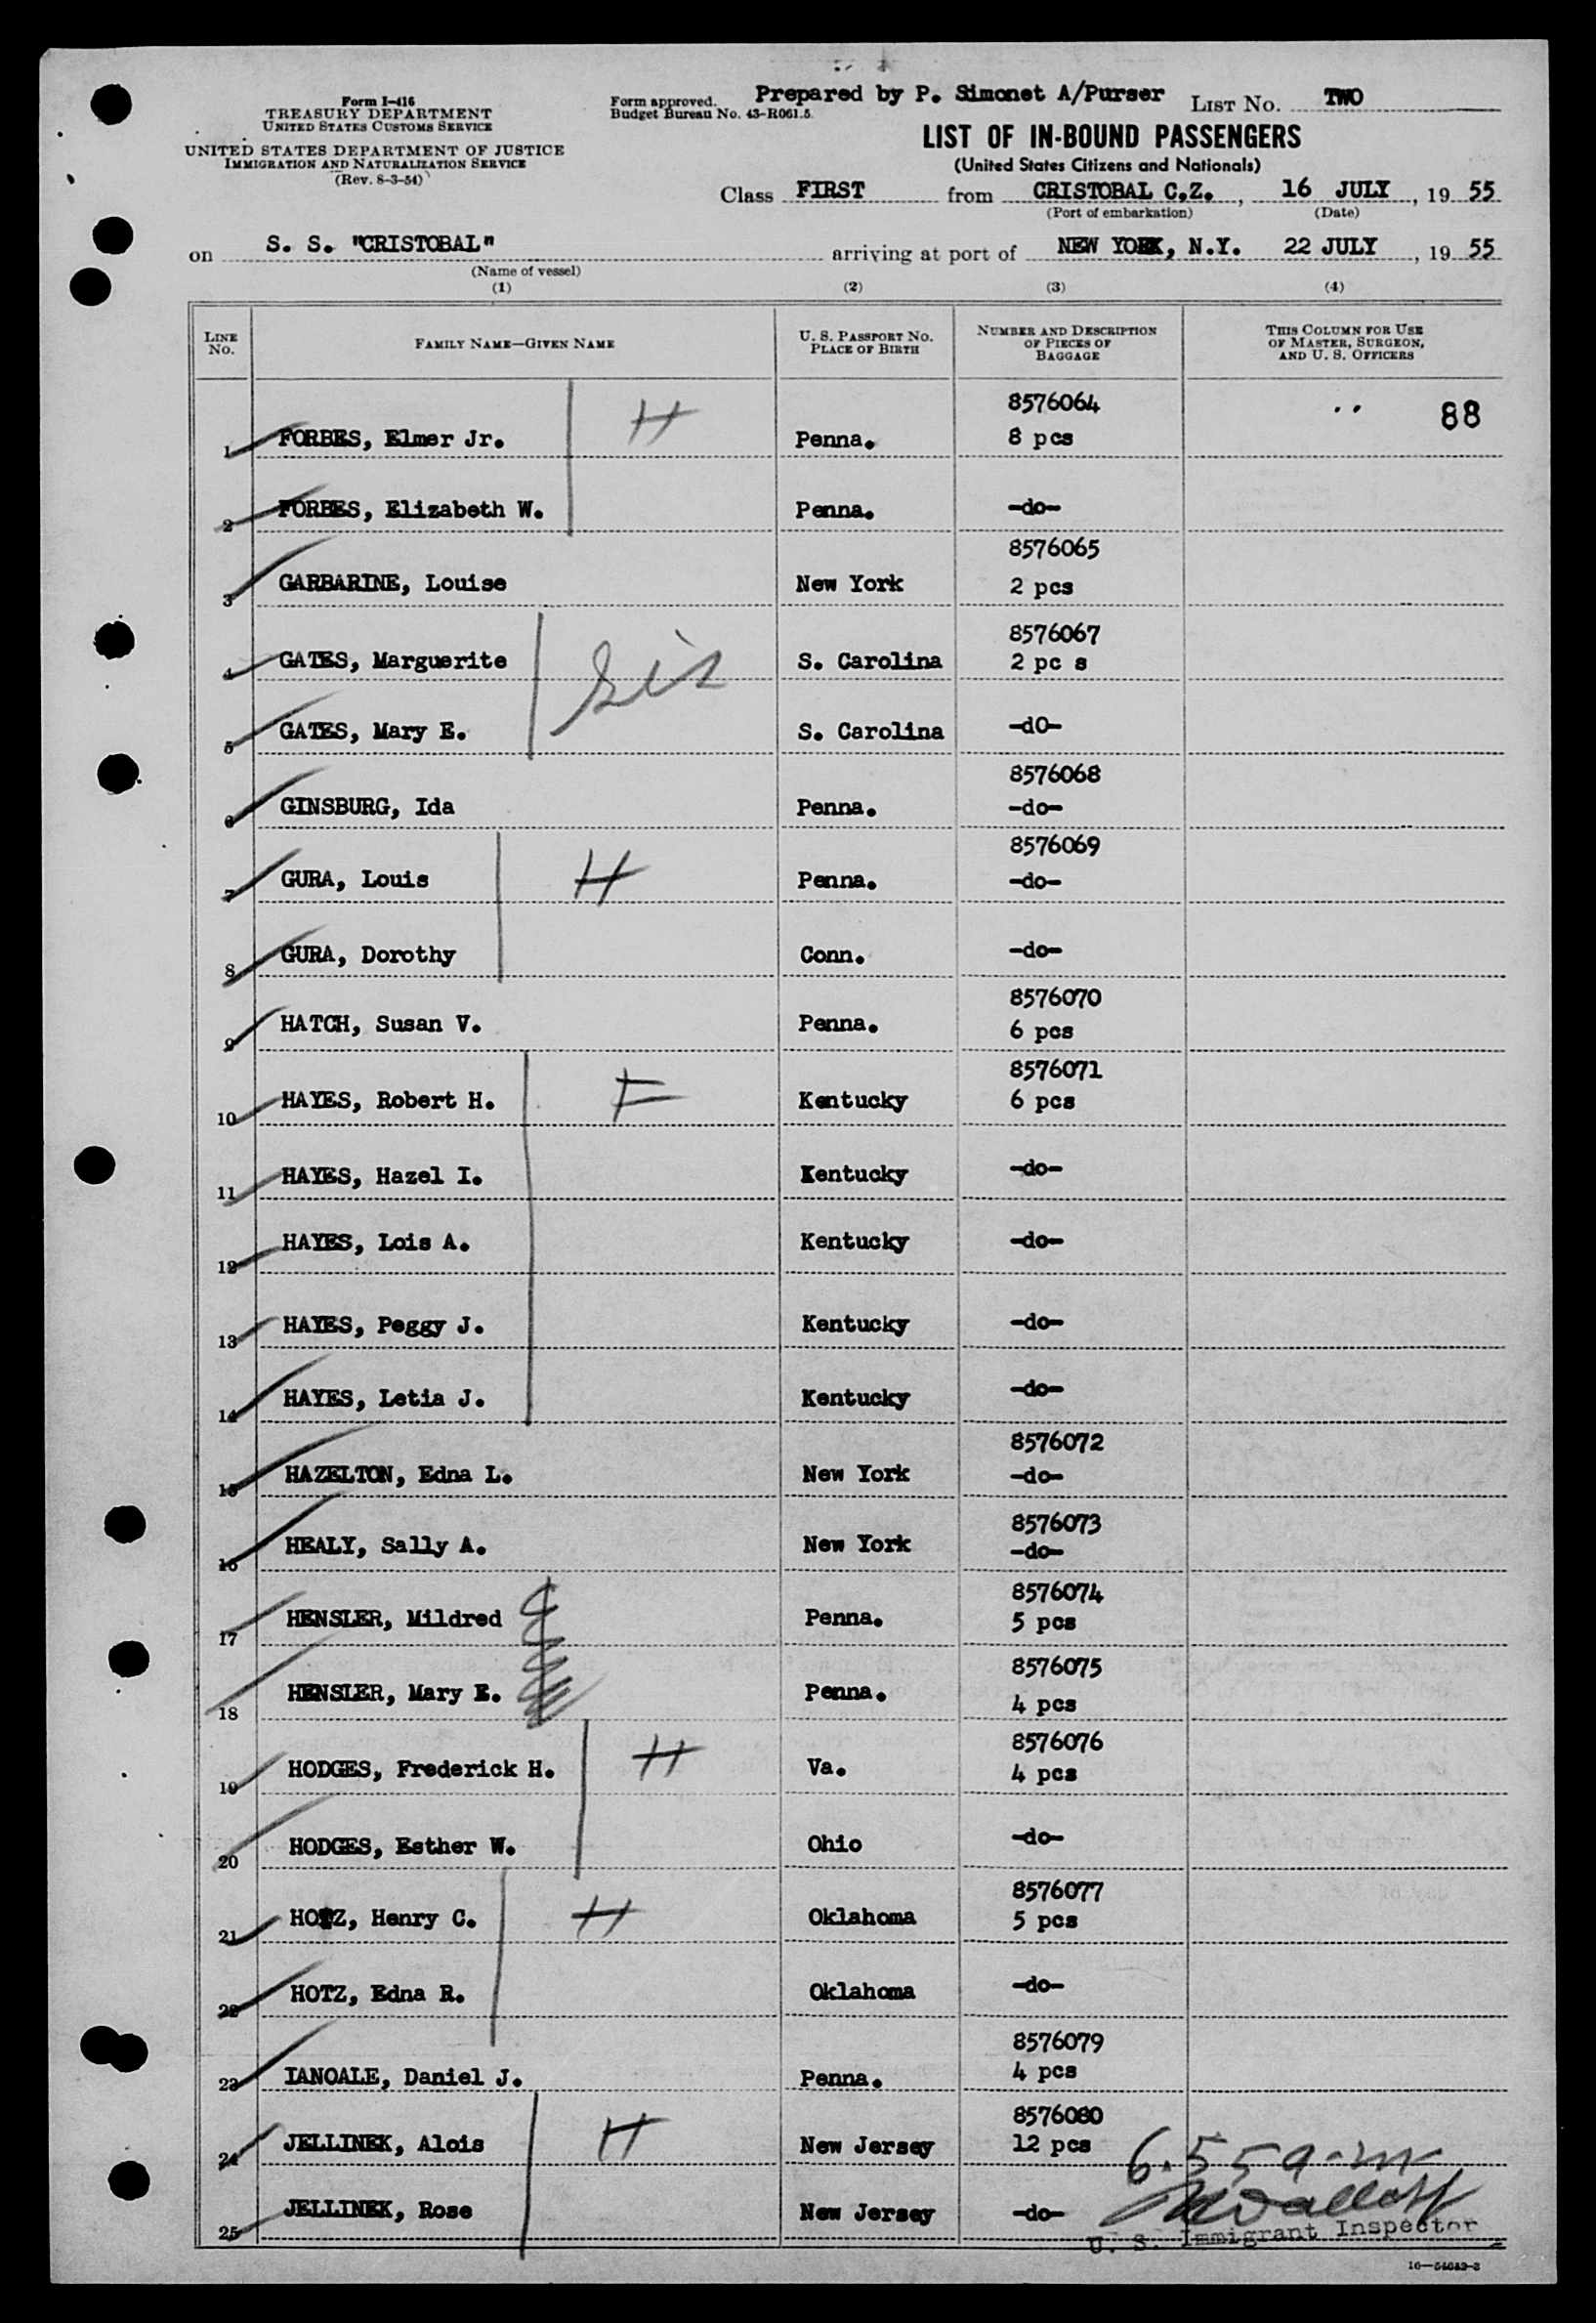 Form I-416
TREASURY DEPARTMENT
UNITED STATES CUSTOMS SERVICE
UNITED STATES DEPARTMENT OF JUSTICE
IMMIGRATION AND NATURALIZATION SERVICE
(Rev. 8-3-54)
Form approved.
Budget Bureau No. 43-R061.5
Prepared by P. Simonet A/Purser
LIST NO. TWO
LIST OF IN-BOUND PASSENGERS
(United States Citizens and Nationals)
Class FIRST from CRISTOBAL C.Z., 16 JULY, 19 55
(Port of embarkation) (Date)
on S. S. "CRISTOBAL" arriving at port of NEW YORK, N.Y. 22 JULY, 19 55
(Name of vessel)
(1) (2) (3) (4)
LINE NO. FAMILY NAME—GIVEN NAME U. S. PASSPORT NO. PLACE OF BIRTH NUMBER AND DESCRIPTION OF PIECES OF BAGGAGE THIS COLUMN FOR USE OF MASTER, SURGEON, AND U. S. OFFICERS
8576064 88
1 FORBES, Elmer Jr. H Penna. 8 pcs
2 FORBES, Elizabeth W. Penna. -do-
8576065
3 GARBARINE, Louise New York 2 pcs
8576067
4 GATES, Marguerite sis S. Carolina 2 pc s
5 GATES, Mary E. S. Carolina -dO-
8576068
6 GINSBURG, Ida Penna. -do-
8576069
7 GURA, Louis H Penna. -do-
8 GURA, Dorothy Conn. -do-
8576070
9 HATCH, Susan V. Penna. 6 pcs
8576071
10 HAYES, Robert H. F Kentucky 6 pcs
11 HAYES, Hazel I. Kentucky -do-
12 HAYES, Lois A. Kentucky -do-
13 HAYES, Peggy J. Kentucky -do-
14 HAYES, Letia J. Kentucky -do-
8576072
15 HAZELTON, Edna L. New York -do-
8576073
16 HEALY, Sally A. New York -do-
8576074
17 HENSLER, Mildred Penna. 5 pcs
8576075
18 HENSLER, Mary E. Penna. 4 pcs
8576076
19 HODGES, Frederick H. H Va. 4 pcs
20 HODGES, Esther W. Ohio -do-
8576077
21 HOTZ, Henry C. H Oklahoma 5 pcs
22 HOTZ, Edna R. Oklahoma -do-
8576079
23 IANOALE, Daniel J. Penna. 4 pcs
8576080
24 JELLINEK, Alois H New Jersey 12 pcs
6.55 a-m
25 JELLINEK, Rose New Jersey -do-
U. S. Immigrant Inspector